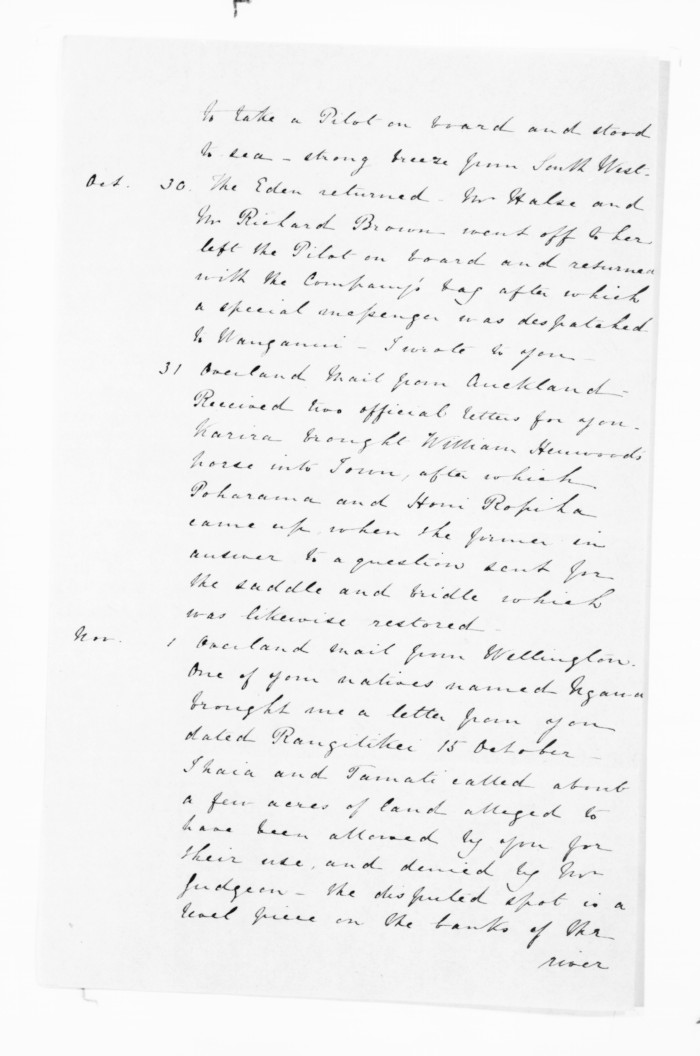 to take a Pilot on board and stood
to sea - strong breeze from South West -
Oct. 30. The Eden returned - Mr Halse and
Mr Richard Brown went off to her
left the Pilot on board and returned
with the Company's bag after which
a special messenger was despatched
to Wanganui - I wrote to you -
31 Overland Mail from Auckland -
Received two official letters for you -
Karira brought William Henwoods
horse into Town, after which
Poharama and Honi Ropiha
came up, when the former in
answer to a question sent for
the saddle and bridle which
was likewise restored -
Nov. 1 Overland mail from Wellington.
One of your natives named Ngawa
brought me a letter from you
dated Rangitikei 15 October -
Ihaia and Tamati called about
a few acres of land alleged to
have been allowed by you for
their use, and denied by Mr
Gudgeon - the disputed spot is a
level piece on the banks of the
river